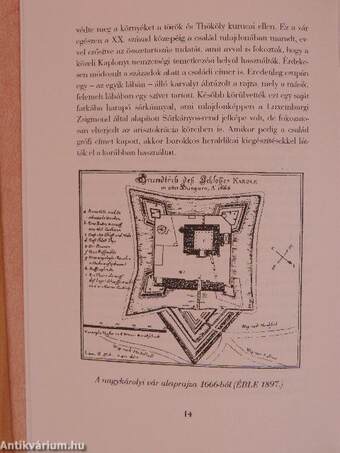 védte meg a környéket a török és Thököly kurucai ellen. Ez a vár
egészen a XX. század közepéig a család tulajdonában maradt, ev-
vel erősítve az összetartozás tudatát, ami azzal is fokoztak, hogy a
közeli Kaplonyt nemzetségi temetkezési helyül használták. Érdeke-
sen módosult a századok alatt a családi címer is. Eredetileg csupán
egy – az egyik lábán – álló karvalyt ábrázolt a rajza, mely a másik,
felemelt lábában egy szívet tartott. Később körülvették ezt egy saját
farkába harapó sárkánnyal, ami tulajdonképpen a Luxemburgi
Zsigmond által alapított Sárkányos-rend jelképe volt, de fokozato-
san elterjedt az arisztokrácia körében is. Amikor pedig a család
grófi címet kapott, akkor barokkos heraldikai kiegészítésekkel lát-
ták el a korábban használtat.
Grundtriß deß Schloßes KAROLY
in ober Hungarn, A. 1666
A nagykárolyi vár alaprajza 1666-ból (ÉBLE 1897.)
14
Antikvárium.hu